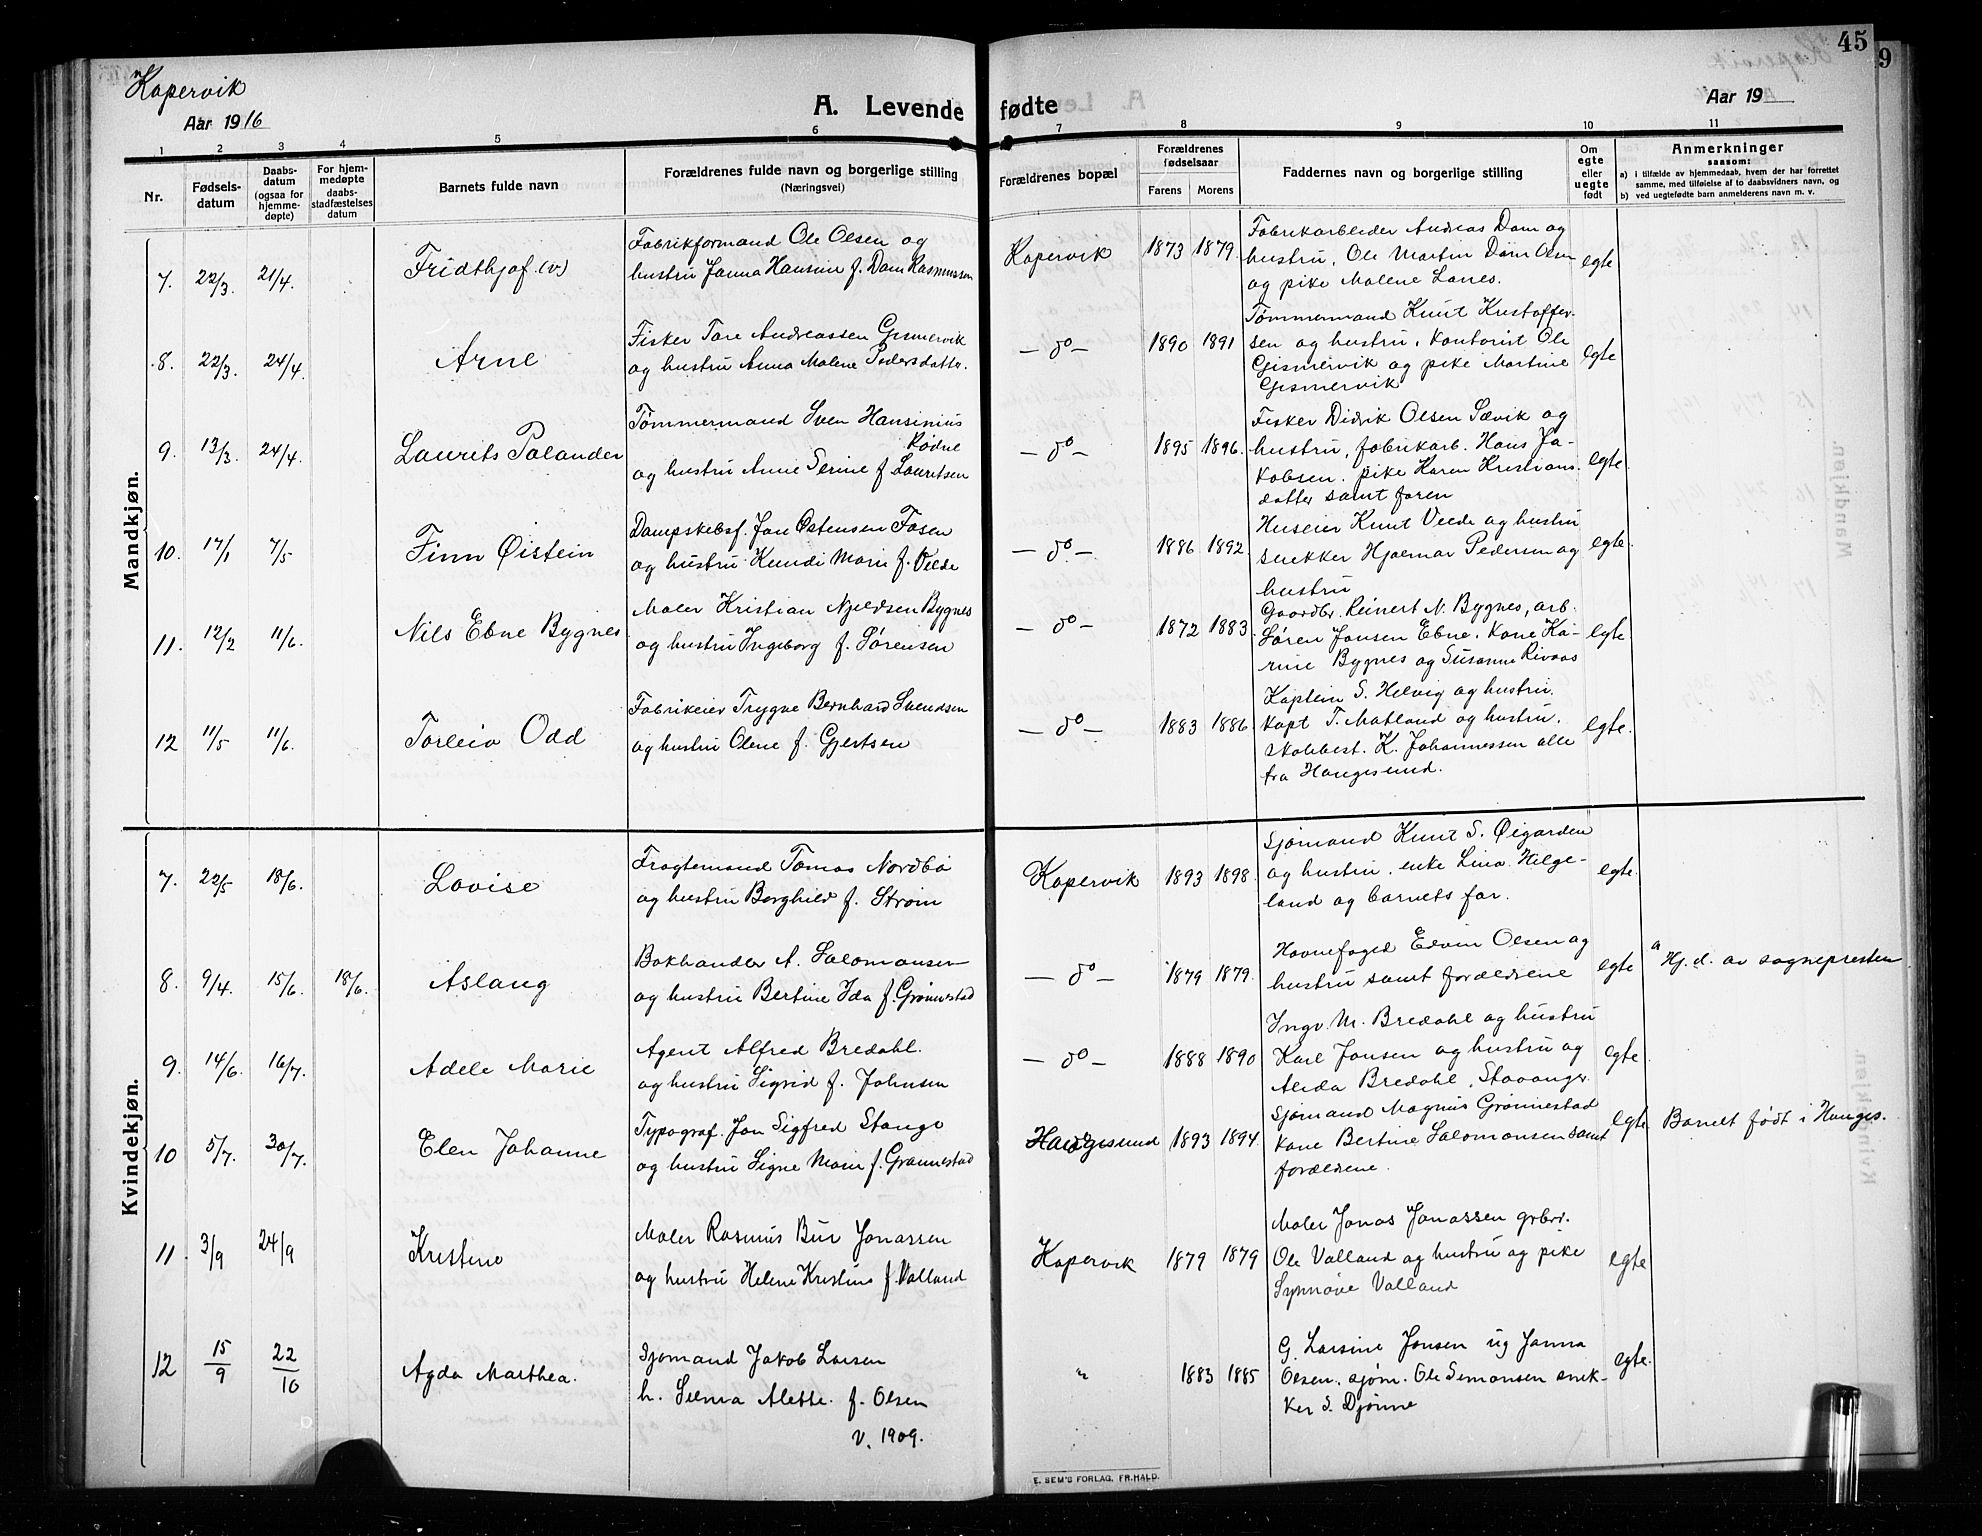 Kopervik
Aar 1916
A. Levende fødte
Aar 19
45
9
1 2 3 4 5 6 7 8 9 10 11
Nr.
Fødsels-
datum
Daabs-
datum
(ogsaa for
hjemme-
døpte)
For hjem-
medøpte
daabs-
stadfæstelses
datum
Barnets fulde navn
Forældrenes fulde navn og borgerlige stilling
(Næringsvei)
Forældrenes bopæl
Forældrenes
fødselsaar
Farens Morens
Faddernes navn og borgerlige stilling
Om
egte
eller
uegte
født
Anmerkninger
saasom:
a) i tilfælde av hjemmedaab, hvem der har forrettet
samme, med tilføielse af to daabsvidners navn, og
b) ved uegtefødte barn anmelderens navn m. v.
Mandkjøn.
7. 22/3. 21/4. Fridthjof (v)
Fabrikformand Ole Olsen og
hustru Janna Hansine f. Dam Rasmussen
Kopervik 1873 1879.
Fabrikarbeider Andreas Dam og
hustru, Ole Martin Dam Olsen
og pike Malene Lones.
egte
8. 22/3. 24/4. Arne
Fisker Tore Andreassen Gismervik
og hustru Anna Malene Pedersdatter.
— do — 1890 1891
Tømmermand Knut Kristoffer-
sen og hustru, Kontorist Ole
Gismervik og pike Martine
Gismervik
egte
9. 13/3. 24/4. Laurits Palander
Tømmermand Sven Hansinius
Rødne
og hustru Anne Serine f. Lauritsen
— do — 1895 1896.
Fisker Didrik Olsen Sævik og
hustru, fabrikarb. Hans Ja-
kobsen. pike Karen Kristians-
datter samt faren
egte.
10. 17/1 7/5 Finn Øistein
Dampskibsf. Jon Østensen Fosen
og hustru Kundi Marie f. Velde
— do — 1886 1892
Huseier Knut Velde og hustru
snekker Hjalmar Pedersen og
hustru
egte.
11. 12/2 11/6. Nils Ebne Bygnes
Maler Kristian Njeldsen Bygnes
og hustru Ingeborg f. Sørensen
— do — 1872 1883
Gaardbr. Reinert N. Bygnes, arb.
Søren Jonsen Ebne, kone Ka-
rine Bygnes og Susanne Rivaas
egte.
12 11/5 11/6. Torleiv Odd
Fabrikeier Trygve Bernhard Svendsen
og hustru Olene f. Gjertsen
— do — 1883 1886.
Kaptein S. Helvig og hustru.
kapt T. Matland og hustru.
skobbest. K. Johannessen alle
fra Haugesund.
egte.
Kvindekjøn.
7. 22/5 18/6. Lovise
Fragtemand Tomas Nordbø
og hustru Borghild f. Strøm
Kopervik 1893 1898.
Sjømand Knut S. Øigarden
og hustru, enke Lina Helge-
land og barnets far.
egte.
8. 9/4. 15/6. 18/6. Aslaug
Bokhandler A. Salomonsen
og hustru Bertine Ida f. Grønnestad
— do — 1879 1879.
Havnefoged Edvin Olsen og
hustru samt forældrene
egte
a Hj. d. av sognepresten
9. 14/6. 16/7. Adele Marie
Agent Alfred Bredahl.
og hustru Sigrid f. Johnsen
— do — 1888 1890
Ingv. M. Bredahl og hustru
Karl Jonsen og hustru og
Alida Bredahl, Stavanger.
egte
10 5/7. 30/7. Elen Johanne
Typograf. Jon Sigfred Stange
og hustru Signe Marie f. Grønnestad
Haugesund 1893 1894.
Sjømand Magnus Grønnestad
kone Bertine Salomonsen samt
forældrene.
egte
Barnet født i Hauges.
11. 3/9 24/9 Kristine
Maler Rasmus Bur Jonassen
og hustru Helene Kristine f. Valland
Kopervik 1879 1879
Maler Jonas Jonassen grbr.
Ole Valland og hustru og pike
Synnøve Valland
egte
12 15/9 22/10 Agda Marthea.
Sjømand Jakob Larsen
h. Selma Alette. f. Olsen
v. 1909.
" 1883 1885
G. Larsine Jonsen ug Janna
Olsen. sjøm. Ole Simonsen snek-
ker S. Djønne
egte.
E. SEM'S FORLAG, FR.HALD.